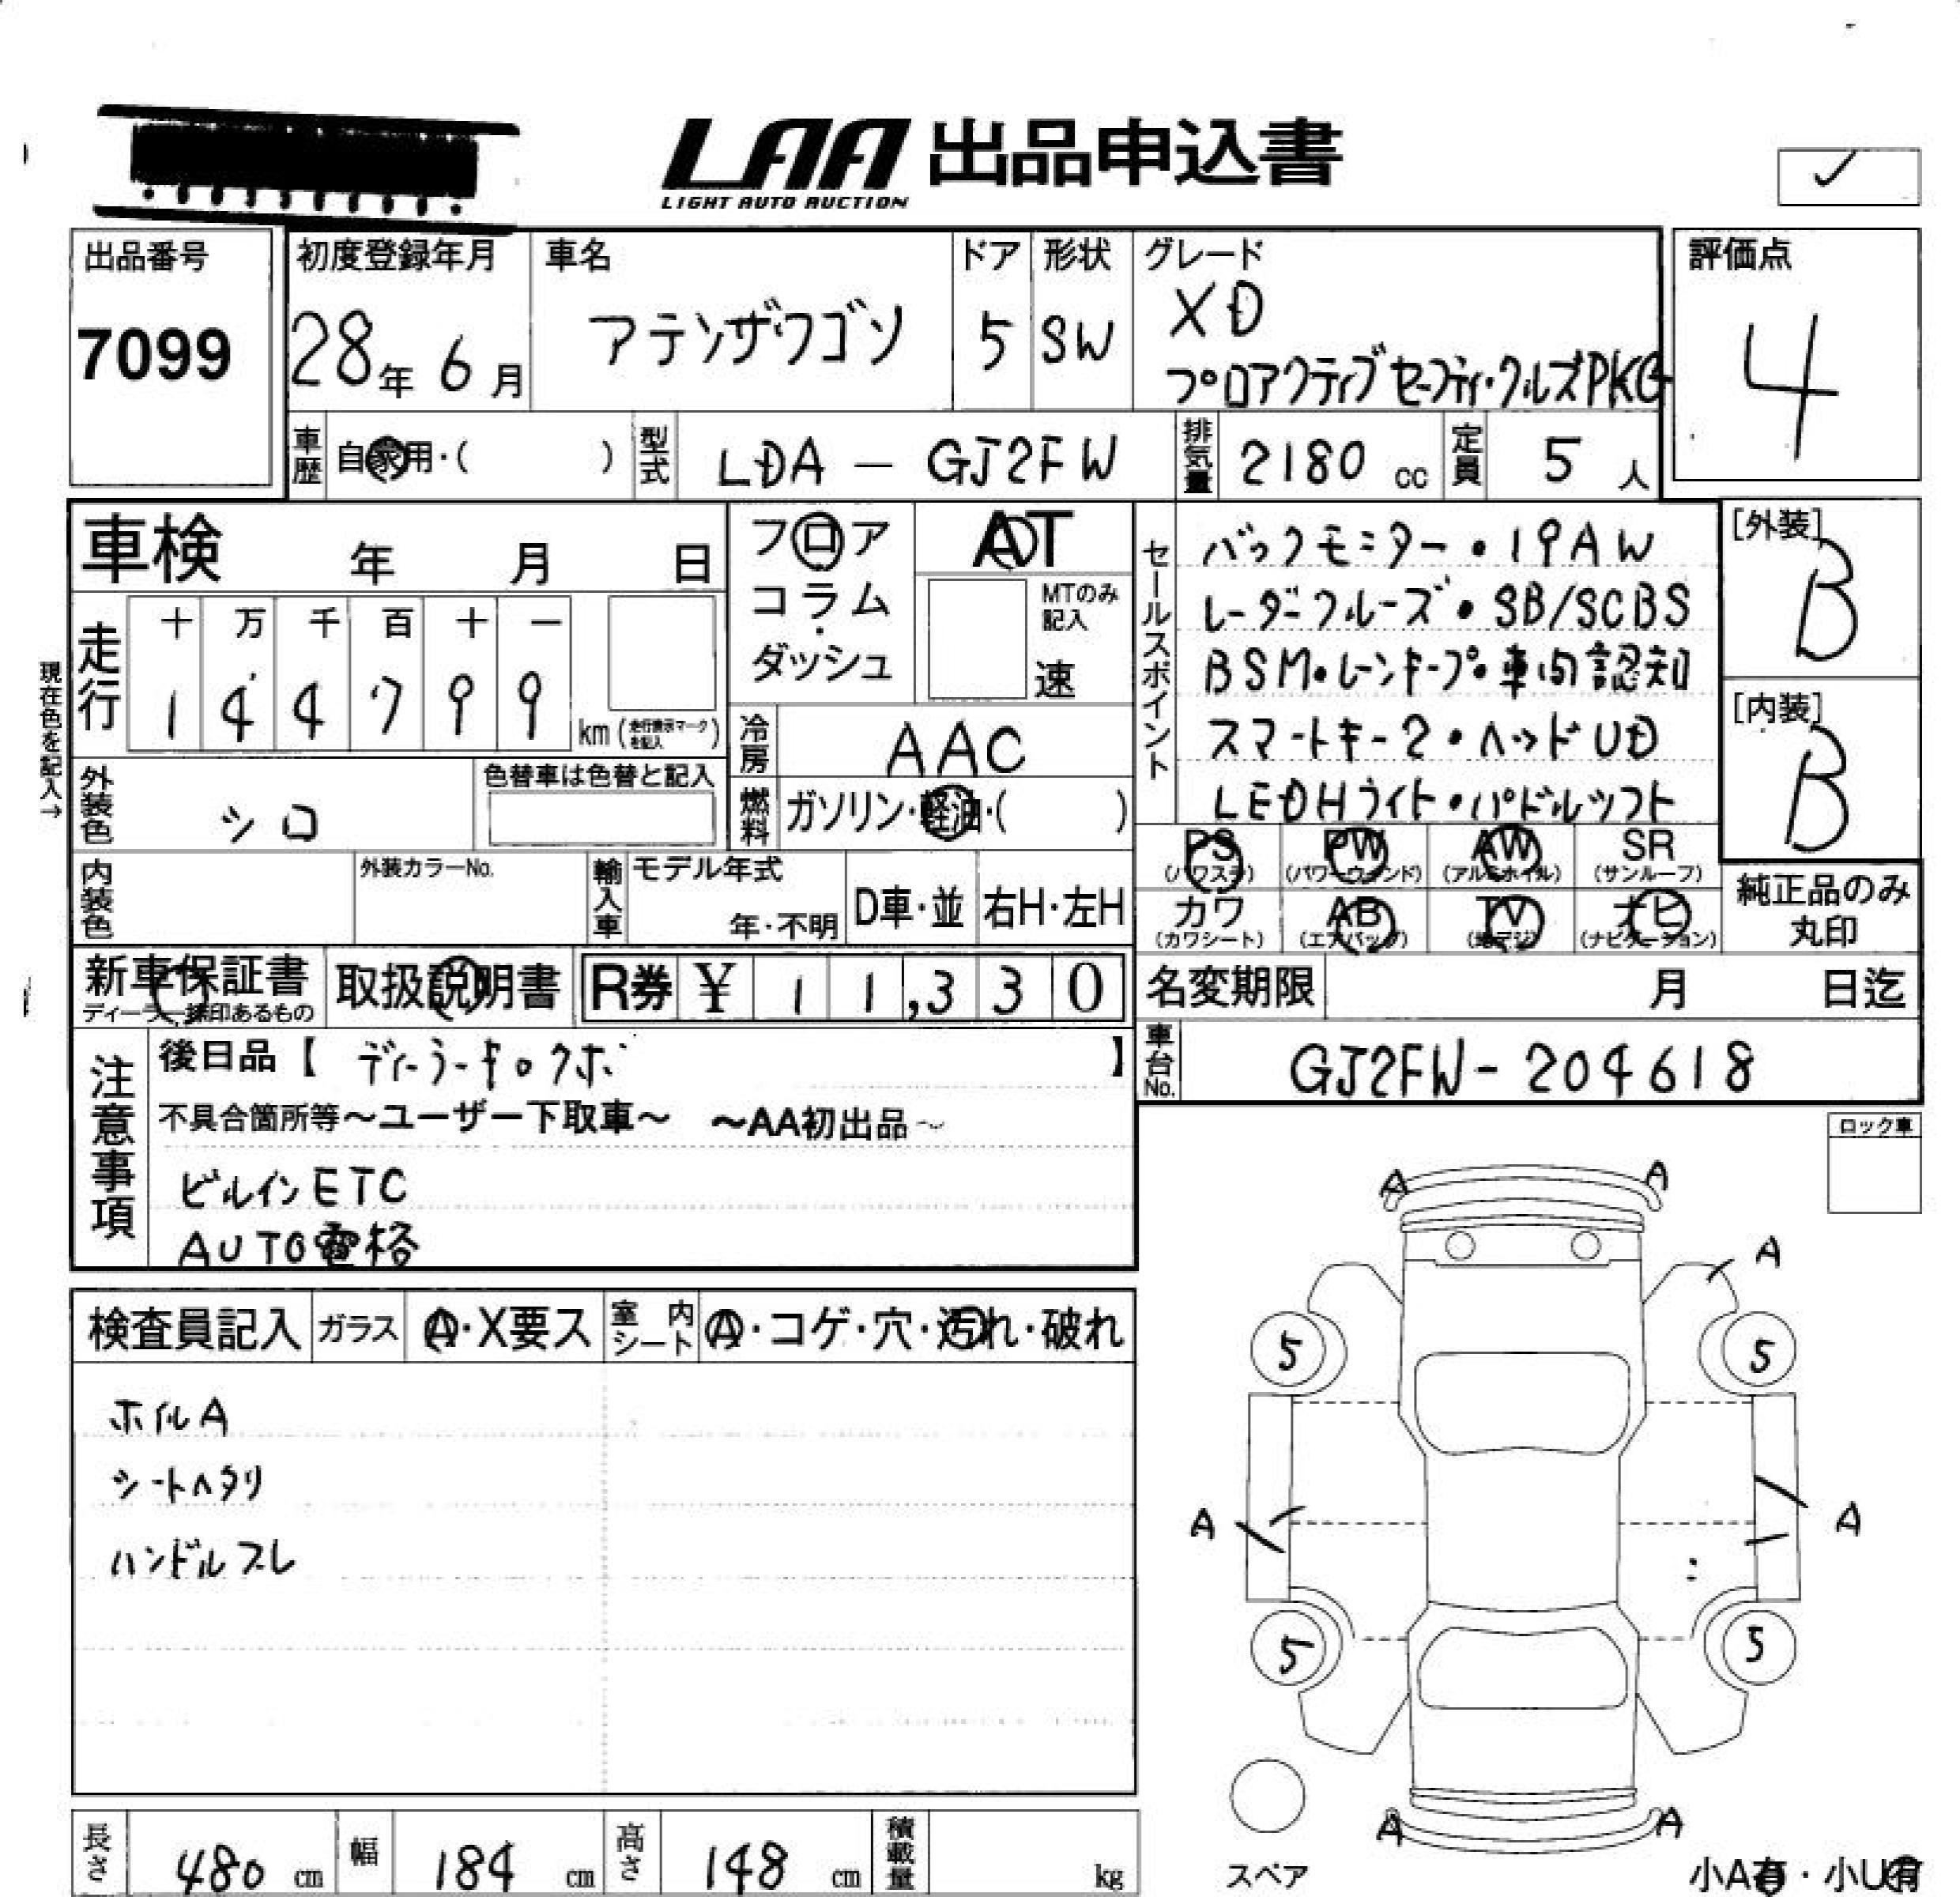 LAA 出品申込書
LIGHT AUTO AUCTION
出品番号
7099
初度登録年月
28年 6月
車名
アテンザワゴン
ドア
5
形状
SW
グレード
XD
プロアクティブセーフティ・クルズPKG
評価点
4
車歴 自家用・( )
型式 LDA − GJ2FW
排気量 2180 cc
定員 5 人
車検 年 月 日
フロア
コラム・
ダッシュ
AT
MTのみ
記入
速
走行
十 万 千 百 十 一
1 4 4 7 9 9
km (走行表示マークを記入)
現在色を記入→
冷房 AAC
燃料 ガソリン・軽油・( )
外装色 シロ
色替車は色替と記入
内装色
外装カラーNo.
輸入車
モデル年式
年・不明
D車・並
右H・左H
セールスポイント
バックモニター・19AW
レーダークルーズ・SB/SCBS
BSM・レーンキープ・車間認知
スマートキー2・ヘッドUD
LEDHライト・パドルシフト
[外装]
B
[内装]
B
PS
(パワステ)
PW
(パワーウィンド)
AW
(アルミホイル)
SR
(サンルーフ)
カワ
(カワシート)
AB
(エアバッグ)
TV
(地デジ)
ナビ
(ナビゲーション)
純正品のみ
丸印
新車保証書
ディーラー採印あるもの
取扱説明書
R券 ¥ 11,330
名変期限 月 日迄
車台No. GJ2FW-204618
注意事項
後日品【 】
不具合箇所等〜ユーザー下取車〜 〜AA初出品〜
ビルインETC
AUTO電格
ロック車
検査員記入
ガラス A・X要ス
室内シート A・コゲ・穴・汚れ・破れ
ホイルA
シートヘタリ
ハンドルスレ
A A
A
5 5
A A
5 5
A A
スペア
小A有・小U有
長さ 480 cm
幅 184 cm
高さ 148 cm
積載量 kg